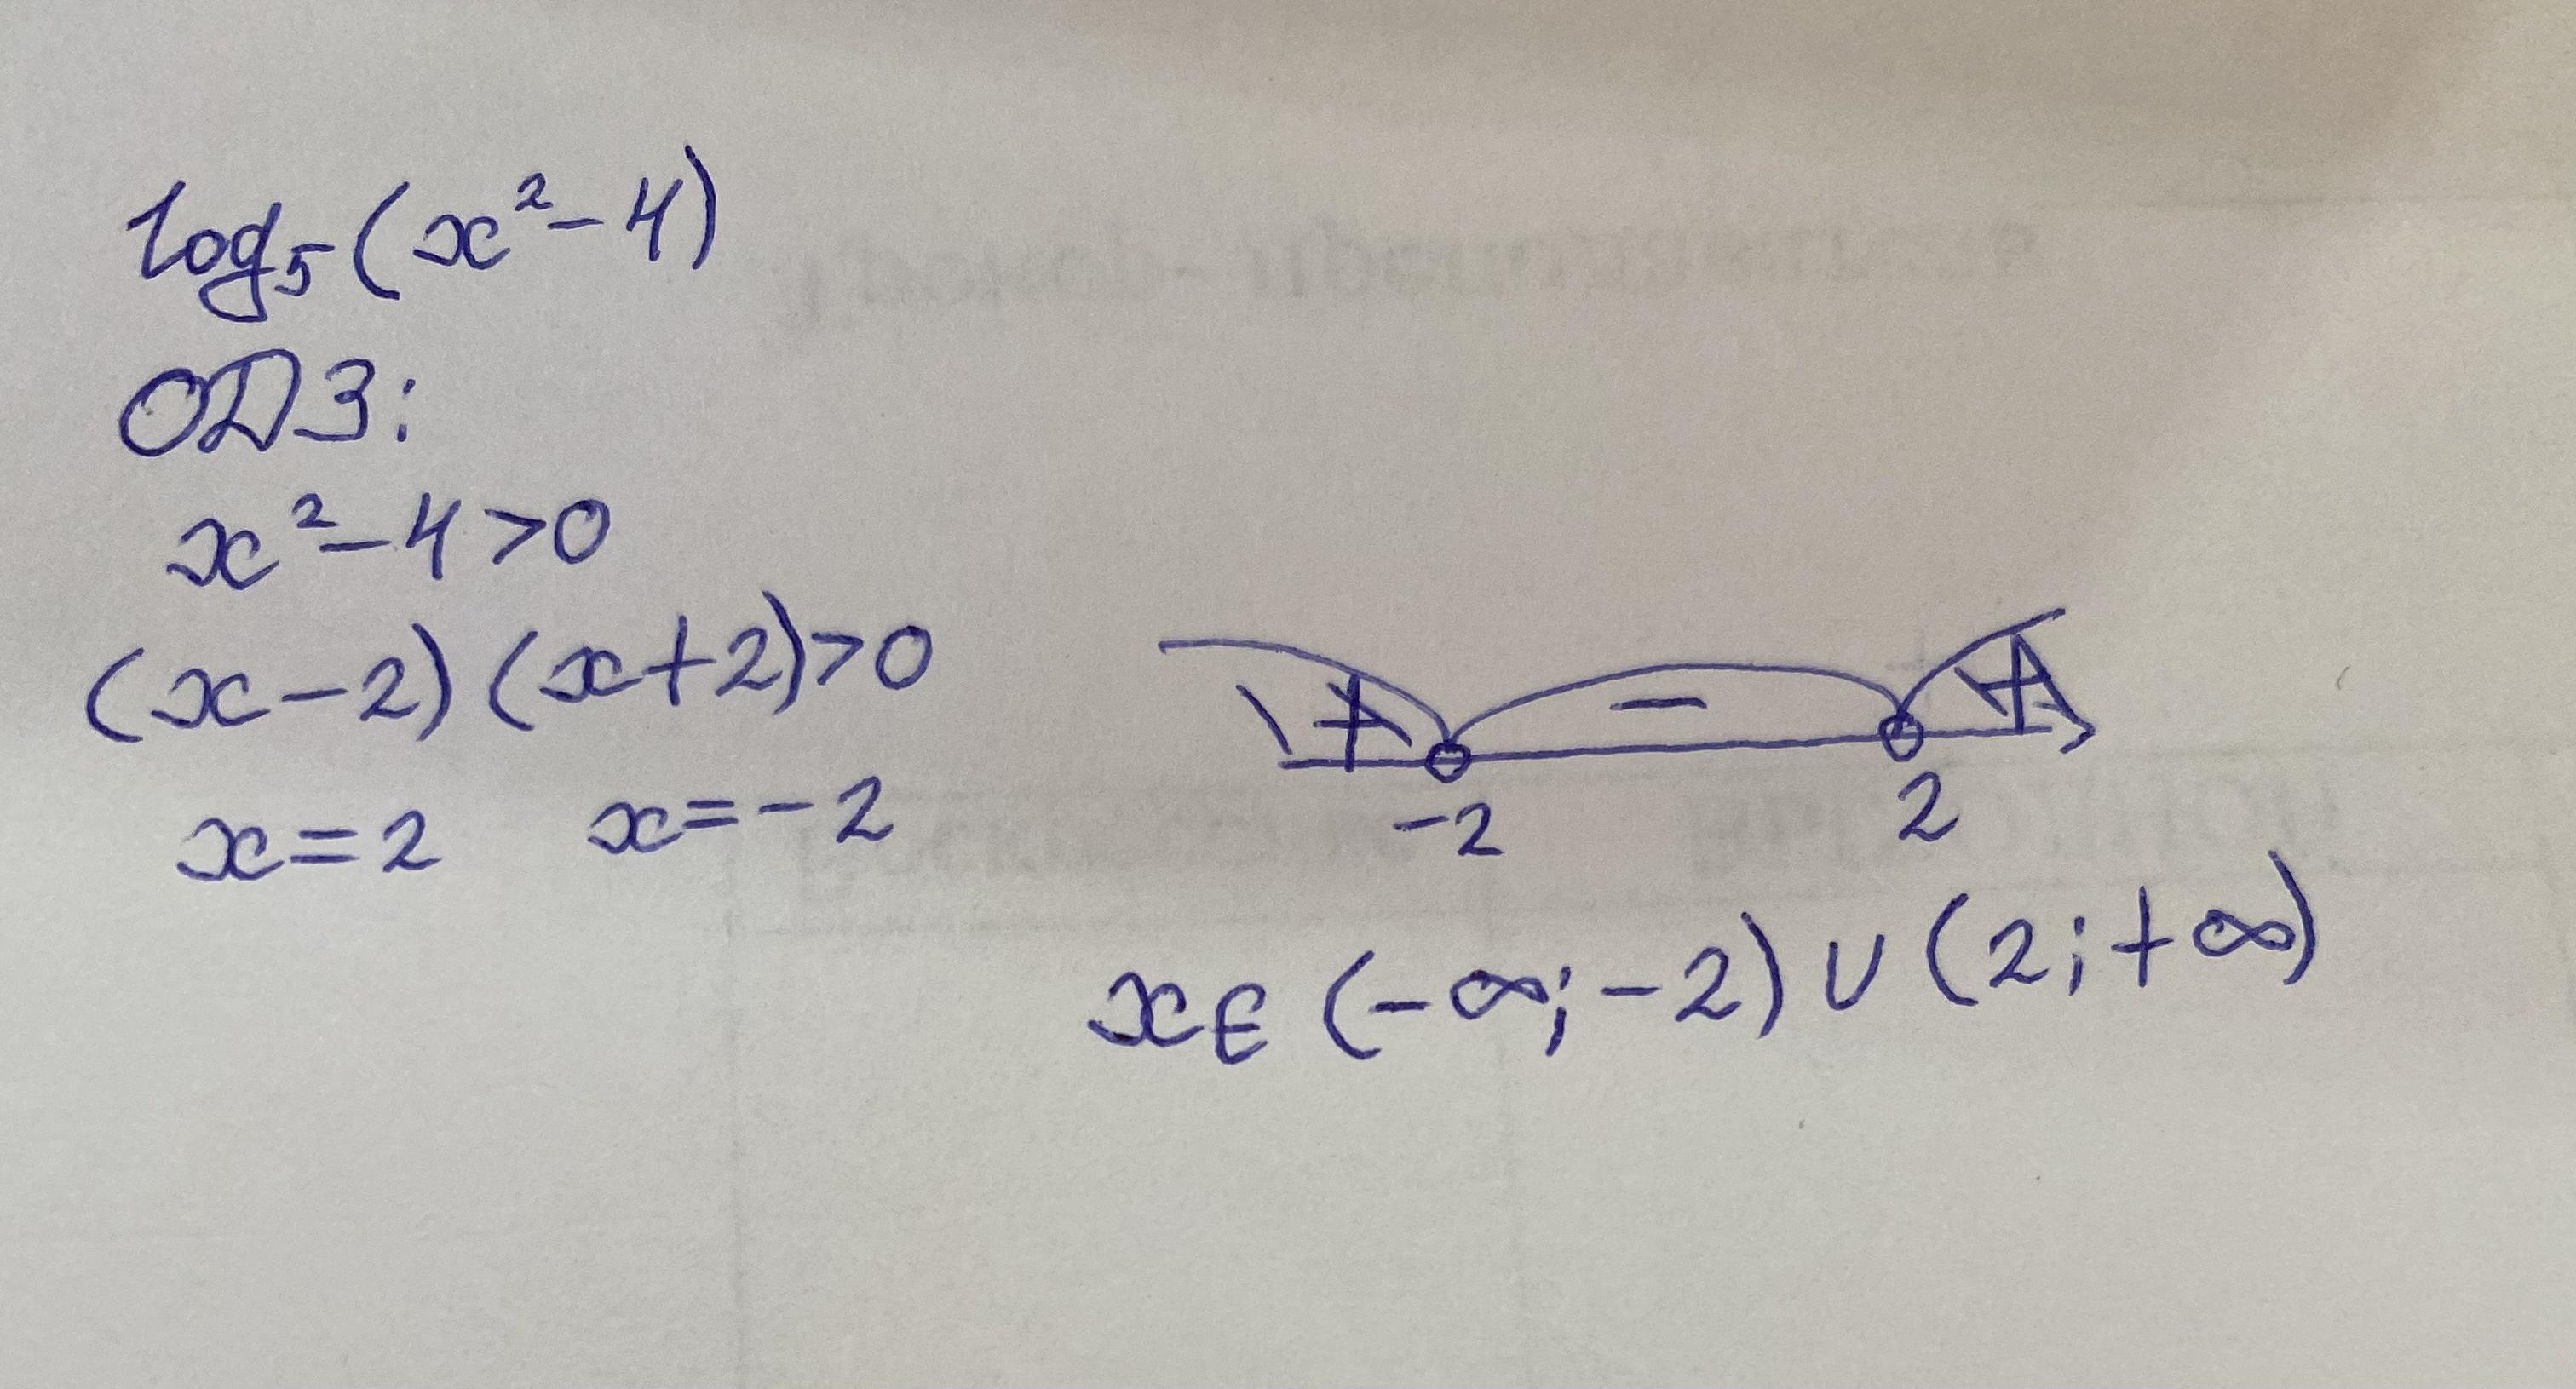 log₅(x²-4)
ОДЗ:
x²-4>0
(x-2)(x+2)>0
x=2 x=-2
+ - +
-2 2
x∈(-∞;-2)∪(2;+∞)